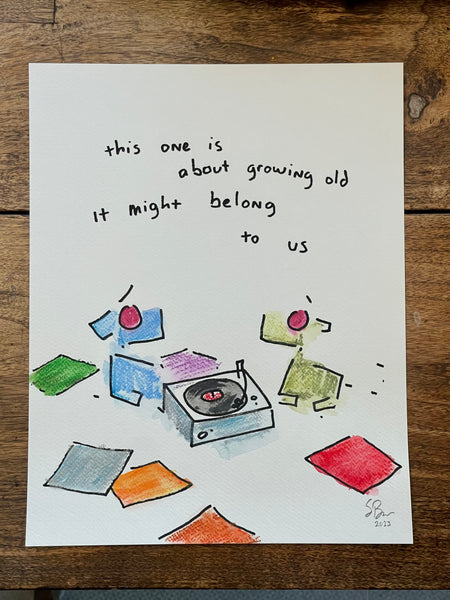 this one is
about growing old
It might belong
to us
2023